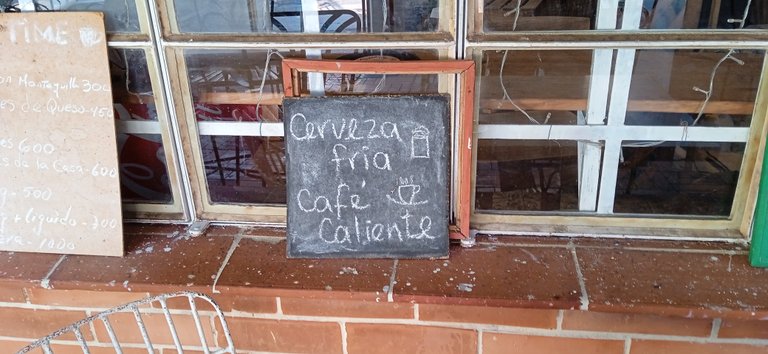 TIME
Mantequilla 300
de Queso - 450
600
de la Casa - 600
- 500
+ liquido - 700
- 1000
Cerveza
fria
Café
Caliente